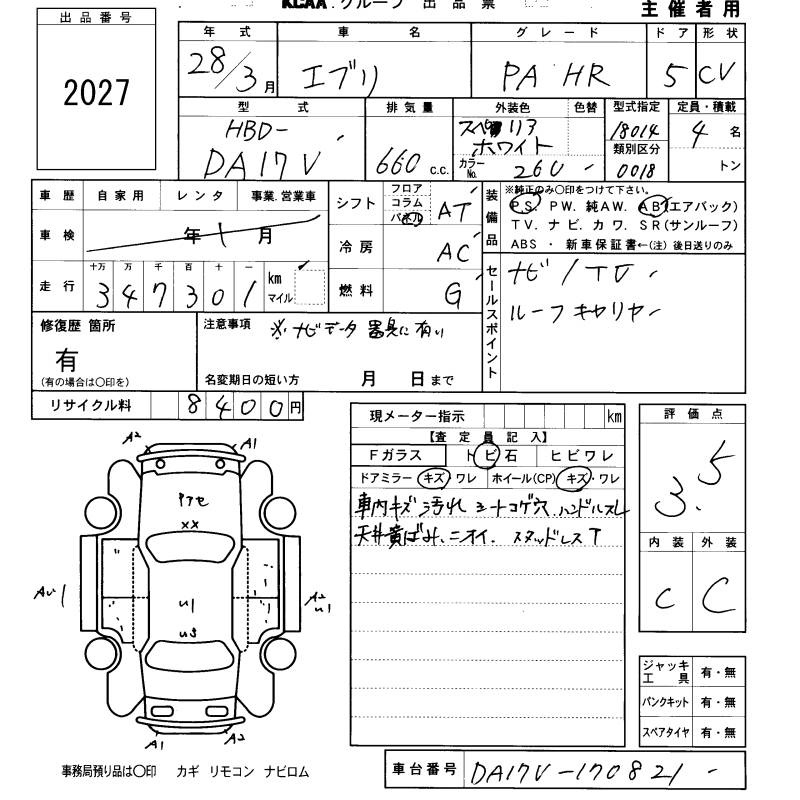 KCAA.グループ 出品票
主催者用
出品番号
2027
年式 車名 グレード ドア 形状
28/3月 エブリ PA HR 5 CV
型式 排気量 外装色 色替 型式指定 定員・積載
HBD- DA17V 660 c.c. ホワイト カラーNo. 26U 18014 4名
類別区分 0018 トン
車歴 自家用 レンタ 事業.営業車
車検 年 月
走行 十万 万 千 百 十 一 km マイル
347301
シフト フロア コラム パネル AT
冷房 AC
燃料 G
装備品
※純正のみ〇印をつけて下さい。
P.S. PW. 純AW. AB(エアバック)
TV. ナビ. カワ. SR(サンルーフ)
ABS ・ 新車保証書←(注) 後日送りのみ
セールスポイント
ナビ/TV
ルーフキャリヤ
修復歴 箇所
有
(有の場合は〇印を)
注意事項 ※ナビデータ 器具に有い
名変期日の短い方 月 日まで
リサイクル料 8400円
現メーター指示 km
【査定員記入】
Fガラス トビ石 ヒビワレ
ドアミラー キズ.ワレ ホイール(CP) キズ.ワレ
車内キズ 汚れ シートコゲ穴.ハンドルスレ
天井黄ばみ.ニオイ. スタッドレスT
評価点
3.5
内装 外装
C C
A2 A1
アアセ
XX
AU1
U1
U3
A2
U1
A1 A2
ジャッキ工具 有・無
パンクキット 有・無
スペアタイヤ 有・無
事務局預り品は〇印 カギ リモコン ナビロム
車台番号 DA17V-170821